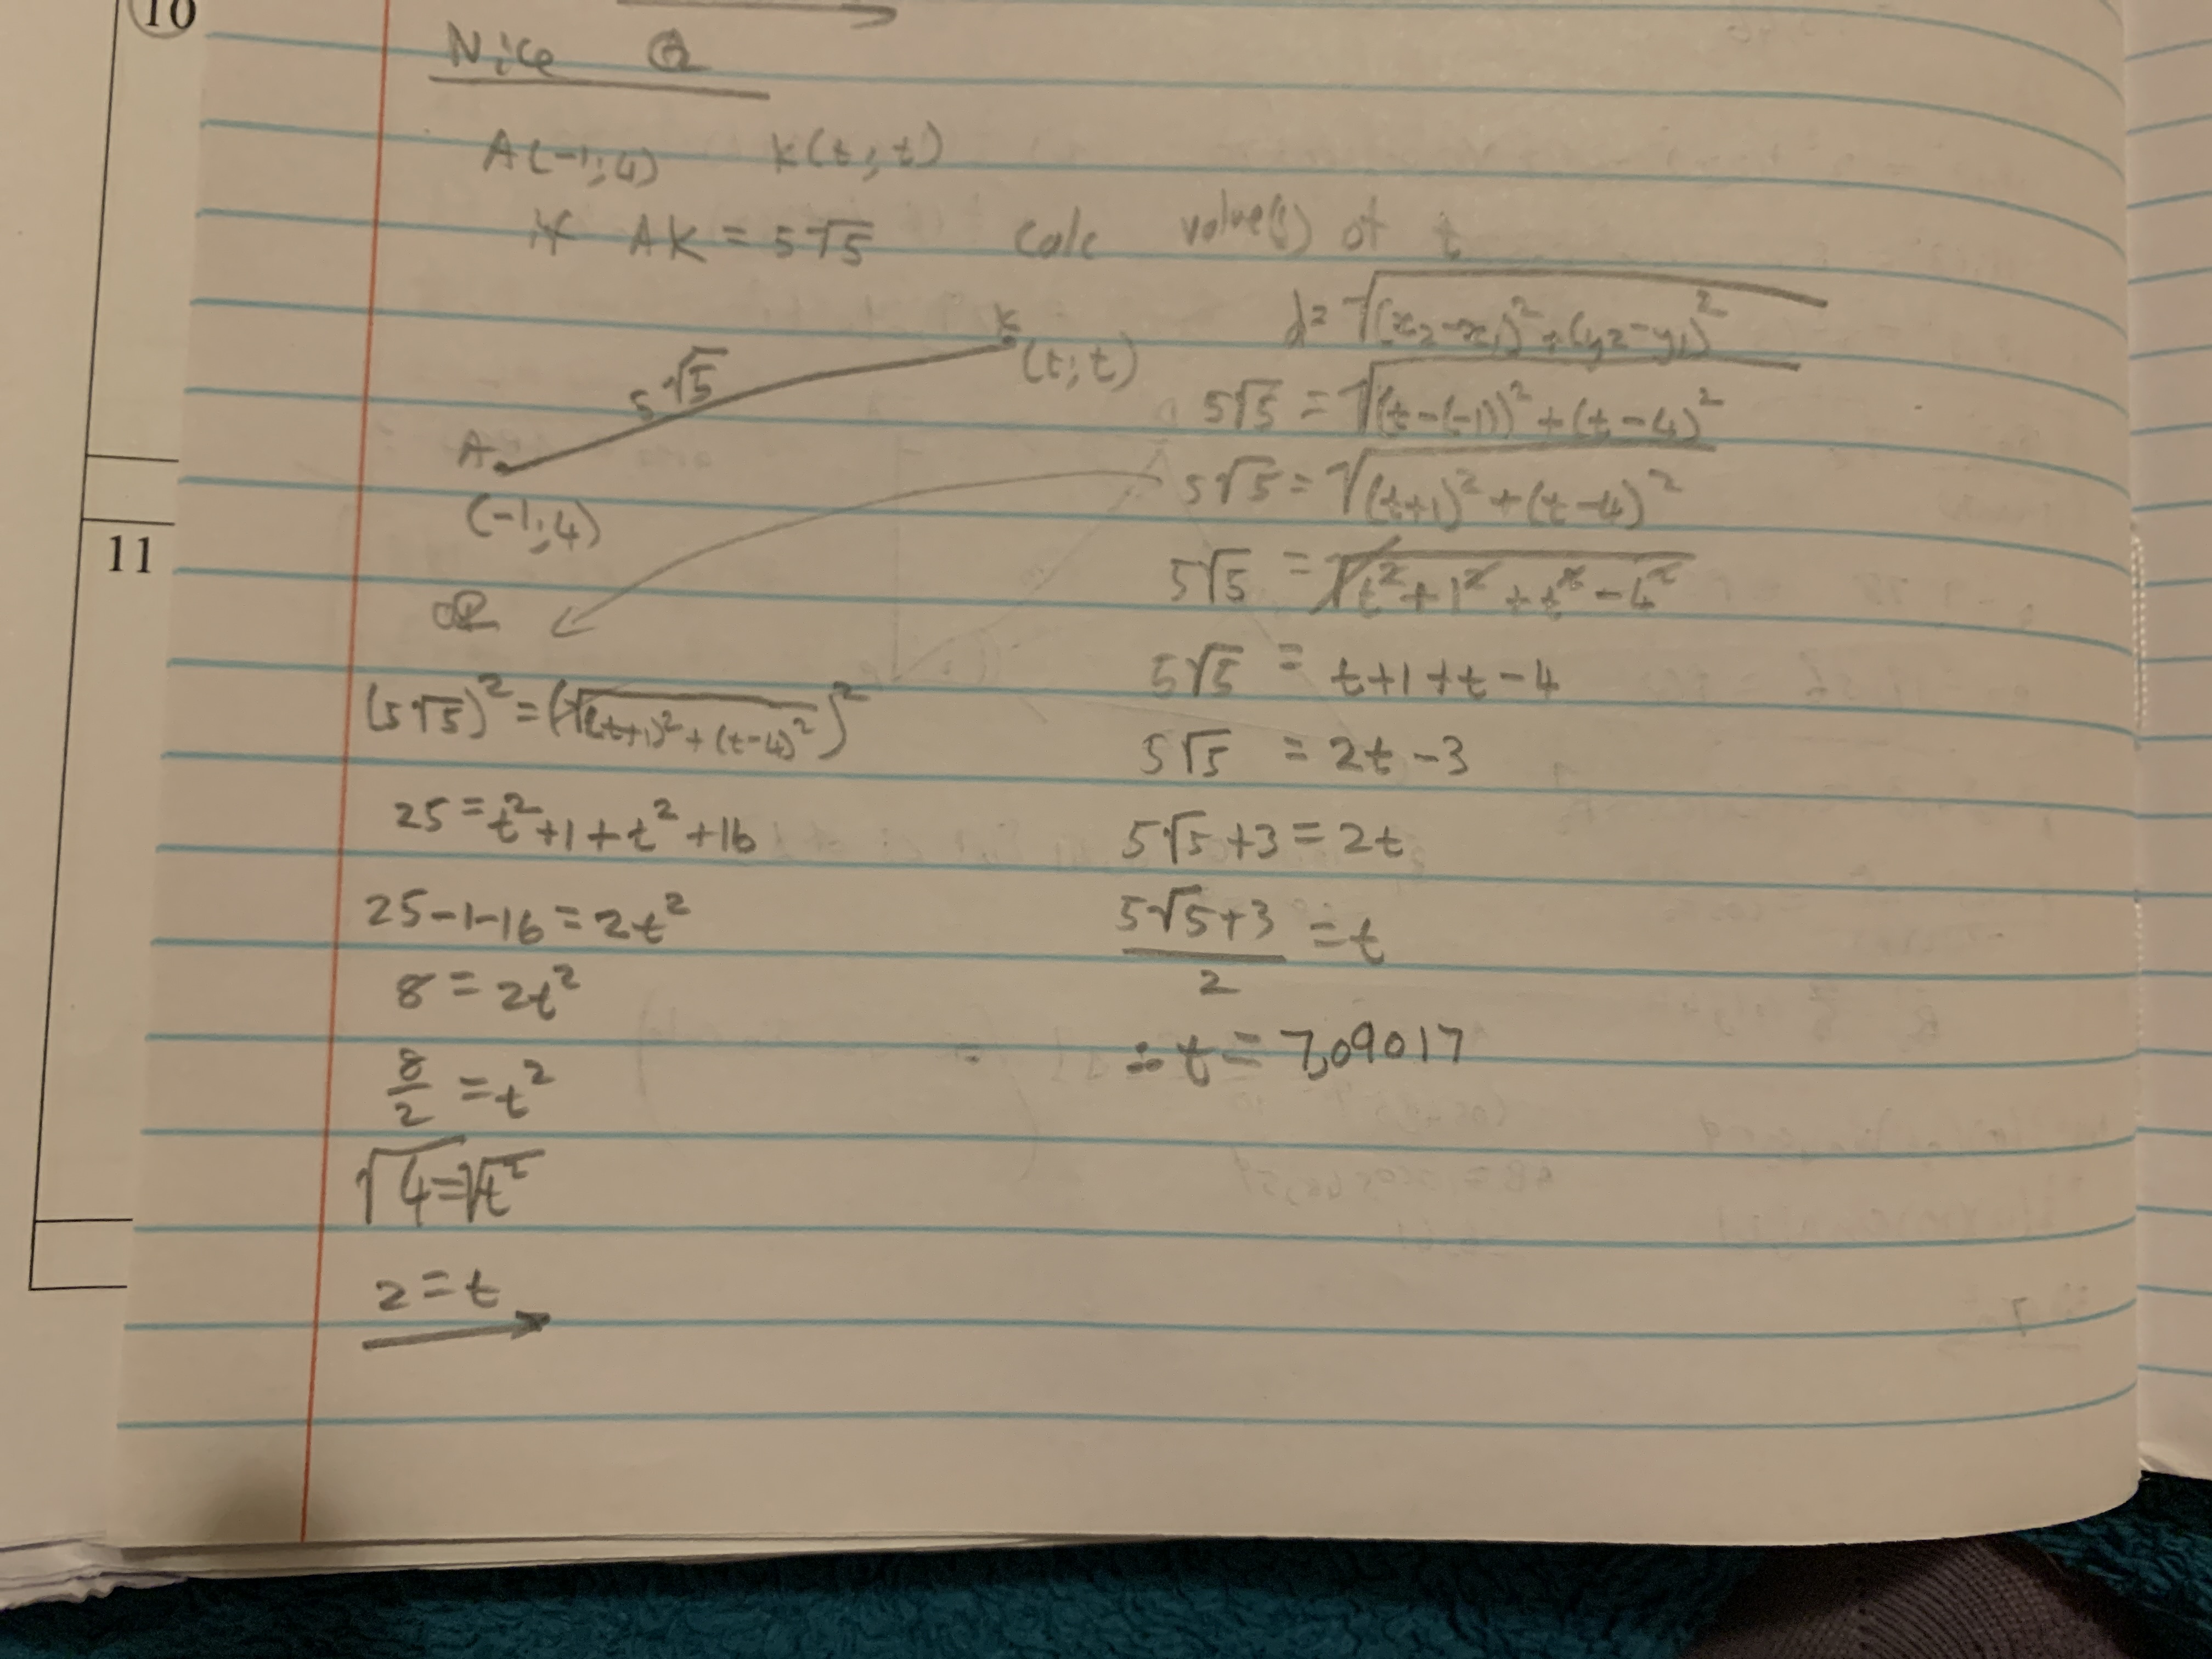 10
11
Nice Q
A(-1;4) K(t;t)
if AK = 5√5 calc value(s) of t
d=√(x₂-x₁)²+(y₂-y₁)²
A
(-1;4)
5√5
K
(t;t)
5√5 = √(t-(-1))²+(t-4)²
5√5 = √(t+1)²+(t-4)²
5√5 = √t²+1²+t²-4²
5√5 = t+1+t-4
5√5 = 2t-3
5√5+3=2t
5√5+3/2 = t
∴ t = 7,09017
OR
(5√5)² = (√(t+1)²+(t-4)²)²
25 = t²+1+t²+16
25-1-16 = 2t²
8 = 2t²
8/2 = t²
√4=√t²
2=t